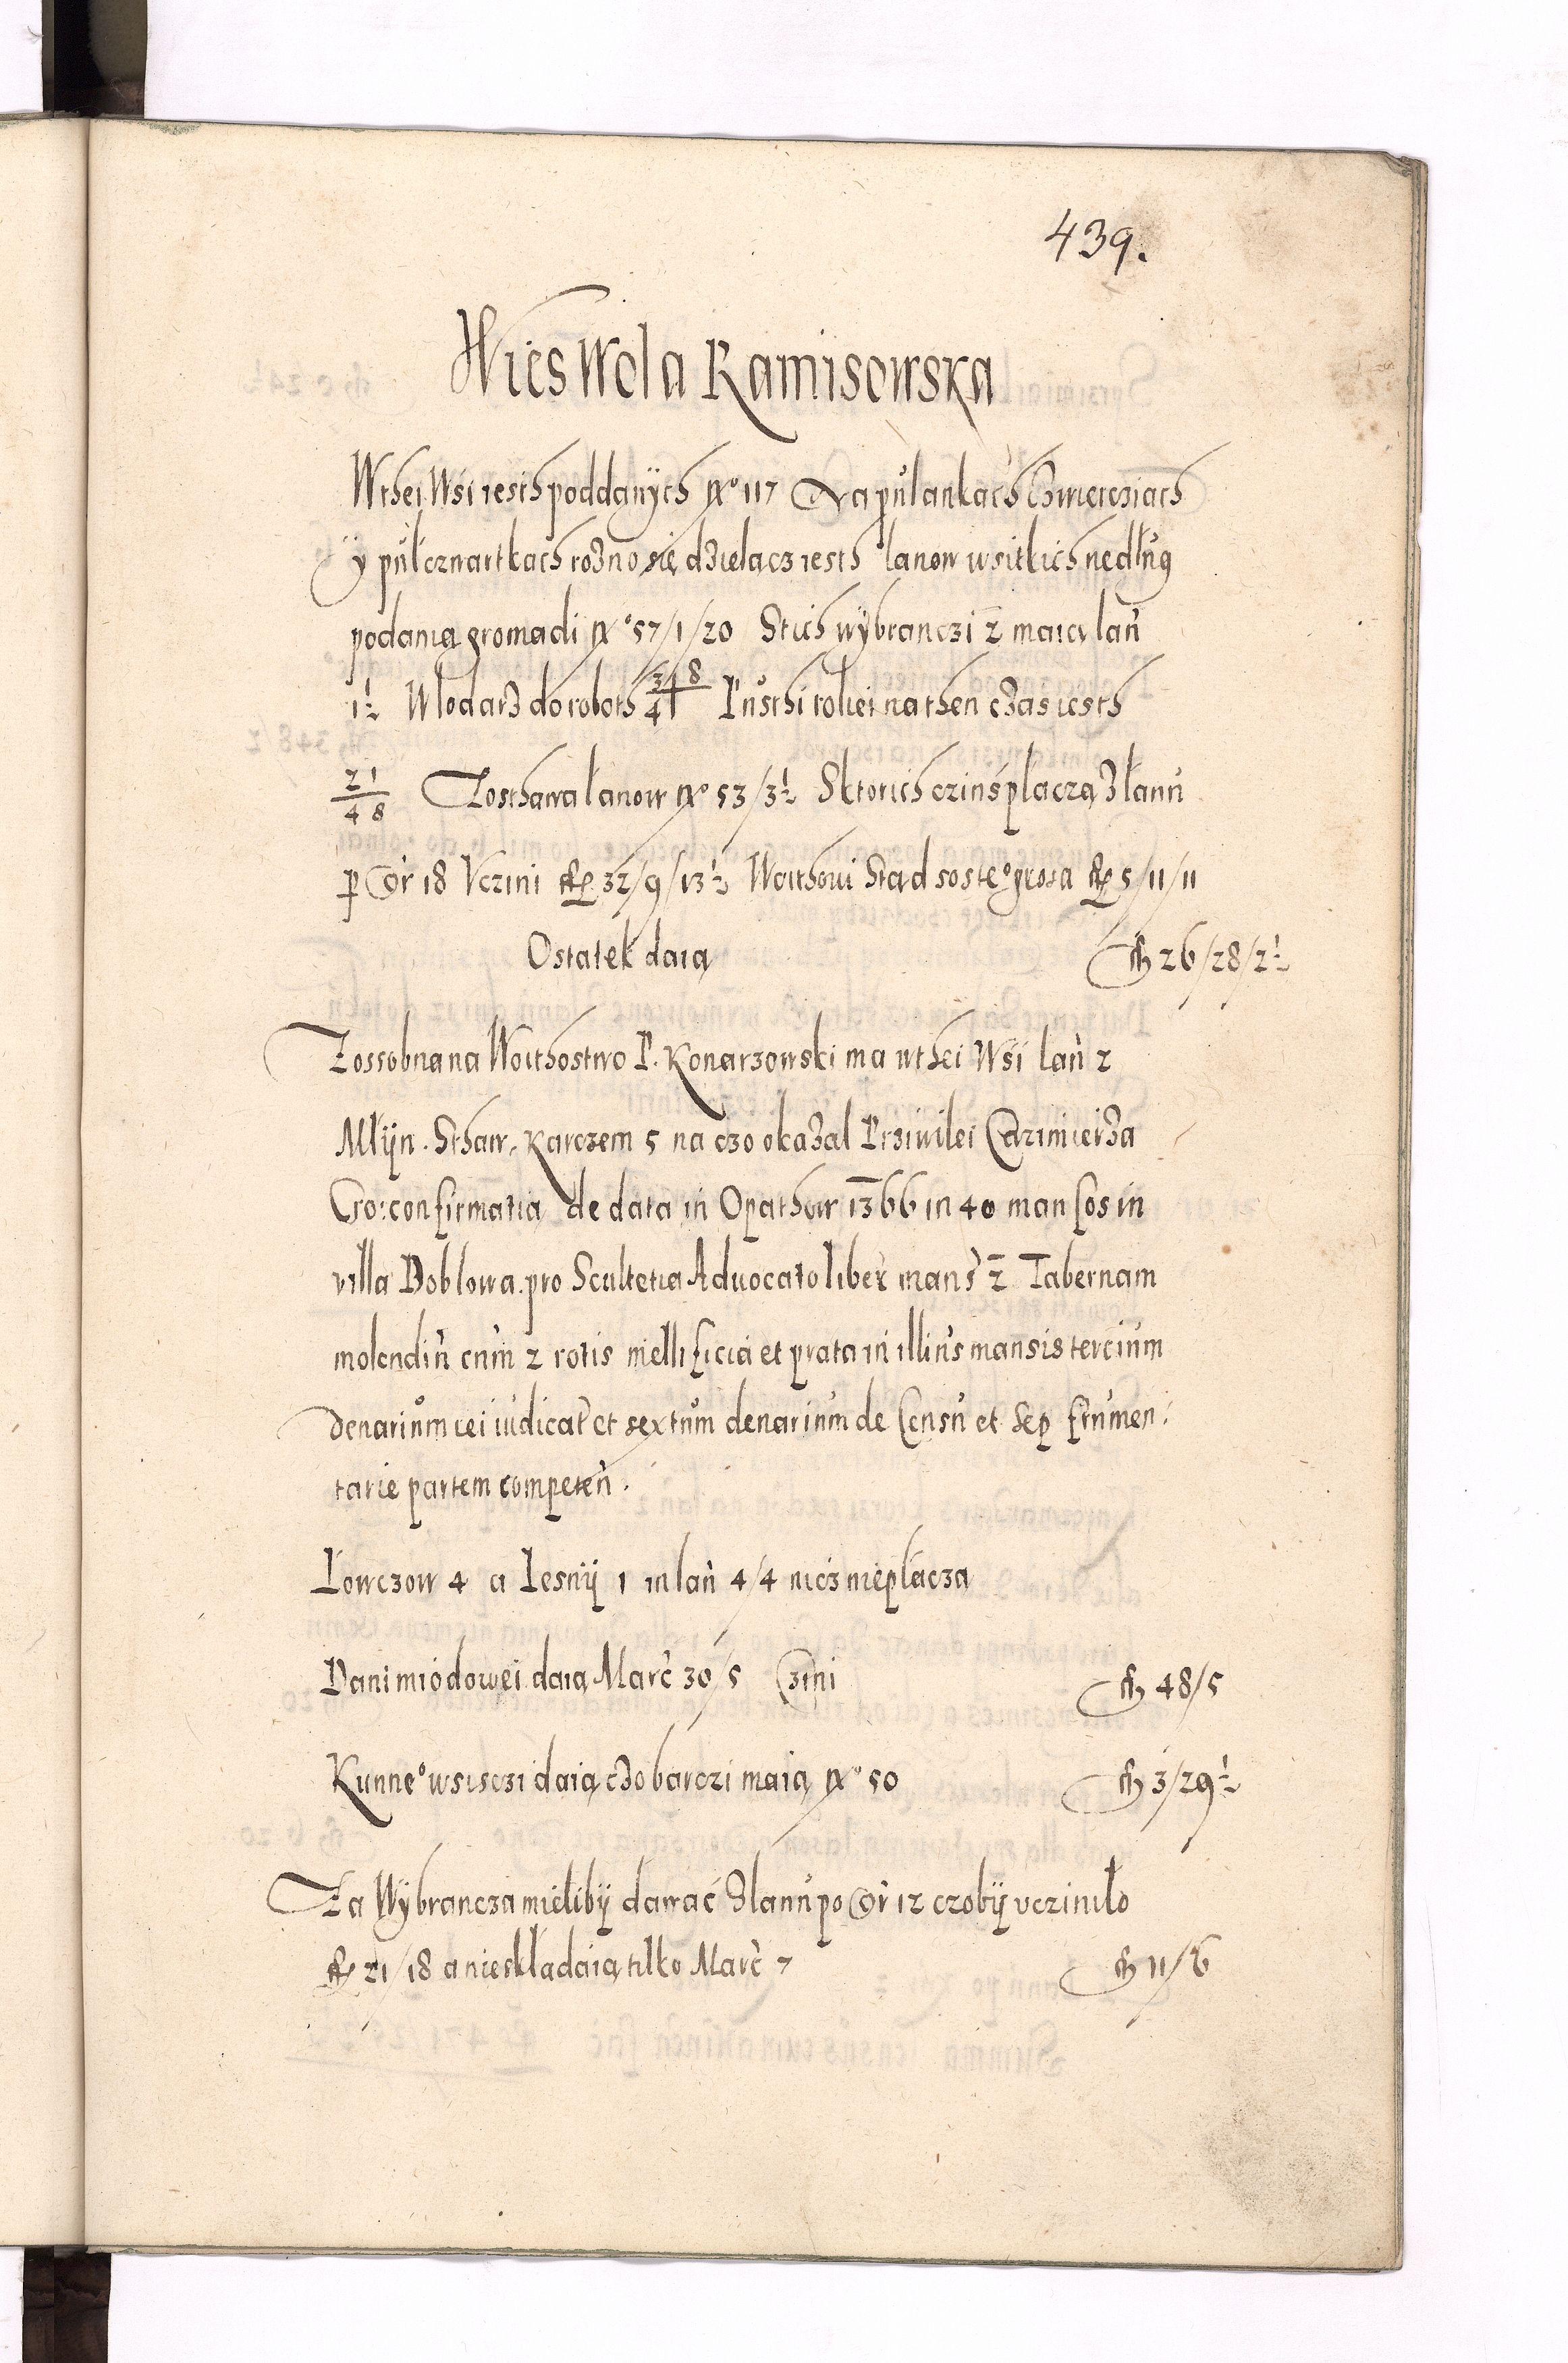 439.
Wies Wola Ramisowska
Wthei Wsi iesth poddanÿch No 117 Na pułankach Czwiercziach
ÿ pulczwartkach rozno się dzielacz iesth łanow wsitkich nedług
podania gromadi No 57/1/20 Stich wÿbranczi 2 maią łan
1½ Wlodarz do roboth 3/4 1/8 Pusthi roliei na then czas iesth
2/4 1/8 Zosthawa łanow No 53/3½ Sktorich czinś płaczą z łanu
p Gr 18 Vczini fl 32/9/13½ Woithowi stąd soste° grosa fl 5/11/11
Ostatek daią fl 26/28/2½
Zossobna na Woithostwo P. Konarzowski ma wthei Wsi lan 2
Młÿn. Sthaw, Karczem 5 na czo okazal Prziwilei Cazimierza
Gro: confirmatia de data in Opathow 1366 in 40 mansos in
villa Doblowa. pro Scultetia Advocato liber mans 2 Tabernam
molendin cum 2 rotis mellificia et prata in illius mansis tercium
denarium rei iudicat et sextum denarium de Censu et Sep frumen:
tarie partem competen.
Lowczow 4 a Lesnÿ 1 in lan 4/4 nicz nie płacza
Dani miodowei daią Marc 30/5 Czini fl 48/5
Kunne° wsisczi daią czo barczi maią No 50 fl 3/29½
Za Wÿbrancza mielibÿ dawać z lanu po Gr 12 czobÿ vcziniło
fl 21/18 a nieskładaią tilko Marc 7 fl 11/6